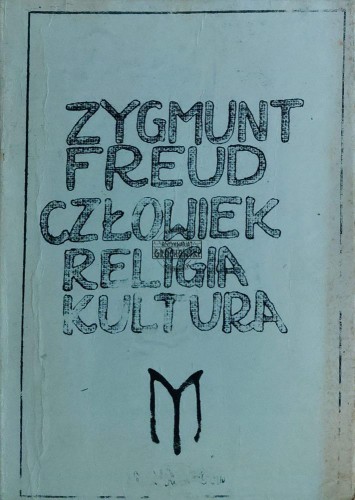 ZYGMUNT
FREUD
CZŁOWIEK
RELIGIA
KULTURA